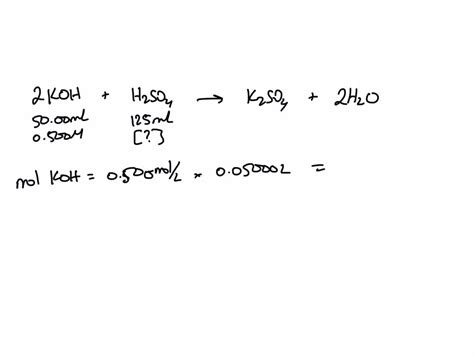 2KOH + H₂SO₄ → K₂SO₄ + 2H₂O
50.00ml 125ml
0.500M [?]
mol KOH = 0.500 mol/L × 0.05000L =